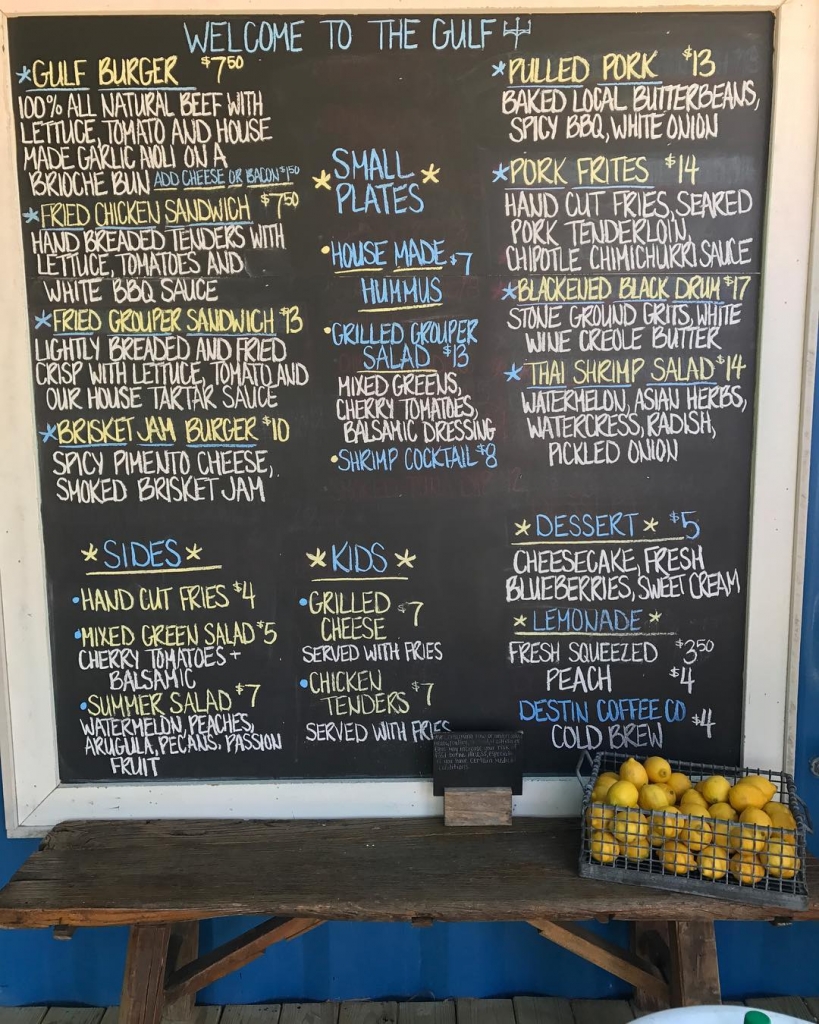 WELCOME TO THE GULF
GULF BURGER $7.50
100% ALL NATURAL BEEF WITH
LETTUCE, TOMATO AND HOUSE
MADE GARLIC AIOLI ON A
BRIOCHE BUN ADD CHEESE OR BACON $1.50
FRIED CHICKEN SANDWICH $7.50
HAND BREADED TENDERS WITH
LETTUCE, TOMATOES AND
WHITE BBQ SAUCE
FRIED GROUPER SANDWICH $13
LIGHTLY BREADED AND FRIED
CRISP WITH LETTUCE, TOMATO AND
OUR HOUSE TARTAR SAUCE
BRISKET JAM BURGER $10
SPICY PIMENTO CHEESE,
SMOKED BRISKET JAM
SMALL
PLATES
HOUSE MADE $7
HUMMUS
GRILLED GROUPER
SALAD $13
MIXED GREENS,
CHERRY TOMATOES,
BALSAMIC DRESSING
SHRIMP COCKTAIL $8
PULLED PORK $13
BAKED LOCAL BUTTERBEANS,
SPICY BBQ, WHITE ONION
PORK FRITES $14
HAND CUT FRIES, SEARED
PORK TENDERLOIN,
CHIPOTLE CHIMICHURRI SAUCE
BLACKENED BLACK DRUM $17
STONE GROUND GRITS, WHITE
WINE CREOLE BUTTER
THAI SHRIMP SALAD $14
WATERMELON, ASIAN HERBS,
WATERCRESS, RADISH,
PICKLED ONION
SIDES
HAND CUT FRIES $4
MIXED GREEN SALAD $5
CHERRY TOMATOES +
BALSAMIC
SUMMER SALAD $7
WATERMELON, PEACHES,
ARUGULA, PECANS, PASSION
FRUIT
KIDS
GRILLED
CHEESE $7
SERVED WITH FRIES
CHICKEN
TENDERS $7
SERVED WITH FRIES
DESSERT $5
CHEESECAKE, FRESH
BLUEBERRIES, SWEET CREAM
LEMONADE
FRESH SQUEEZED $3.50
PEACH $4
DESTIN COFFEE CO
COLD BREW $4